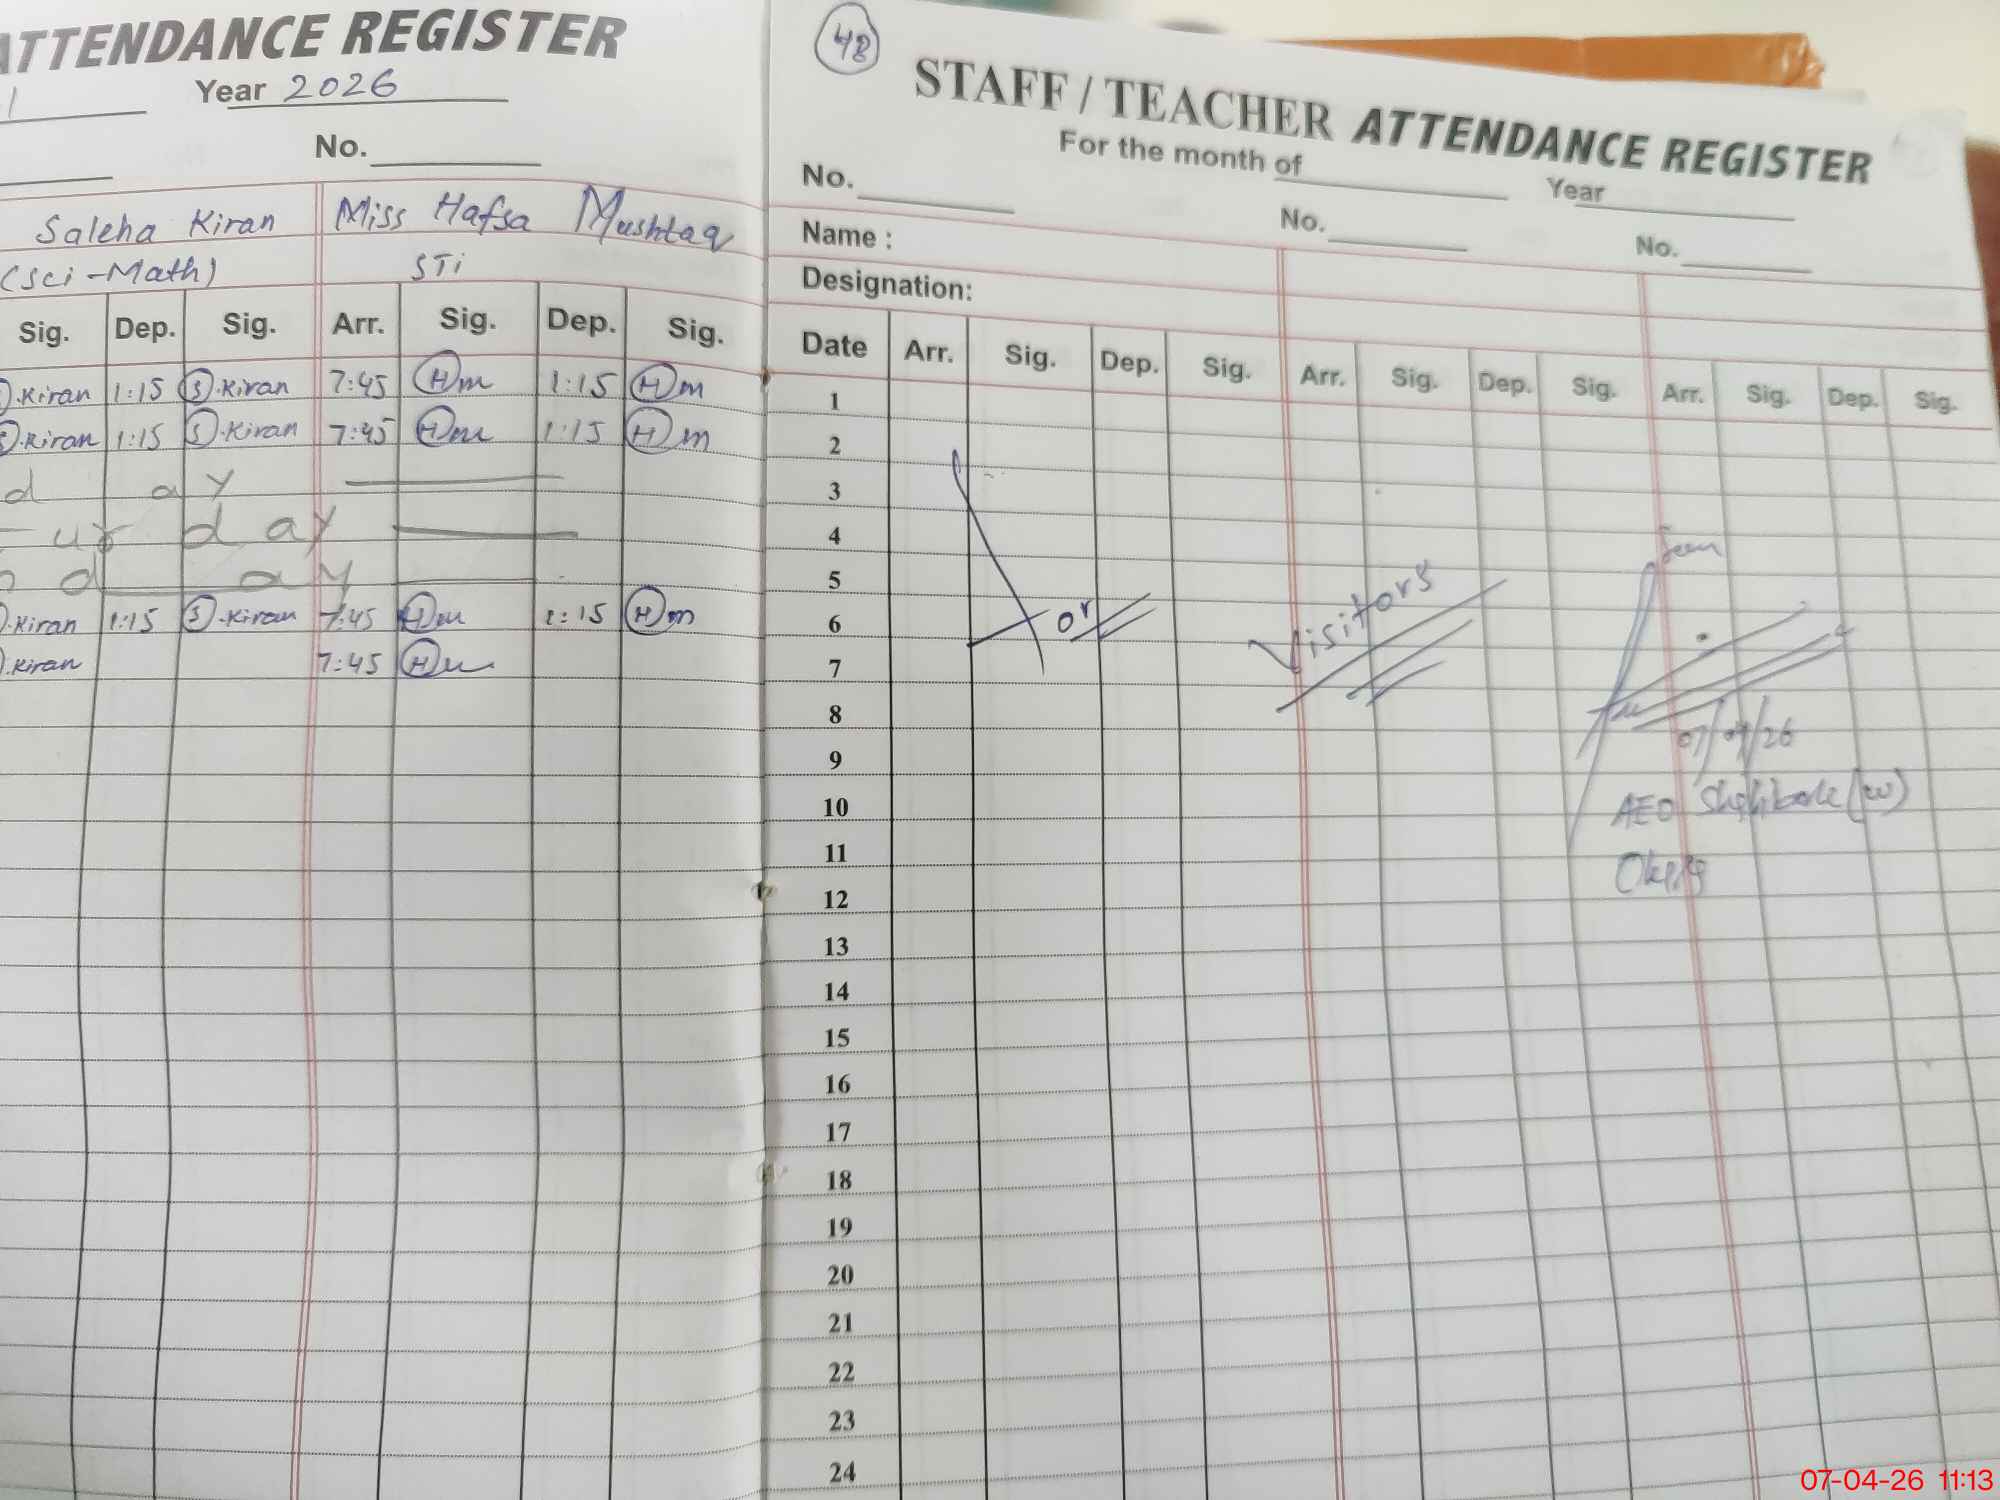 ATTENDANCE REGISTER
Year 2026
No.
Saleha Kiran Miss Hafsa Mushtaq
(Sci-Math) STi
Sig. Dep. Sig. Arr. Sig. Dep. Sig.
.Kiran 1:15 (S).Kiran 7:45 (H)m 1:15 (H)m
.Kiran 1:15 (S).Kiran 7:45 (H)m 1:15 (H)m
d ay
ur day
d ay
.Kiran 1:15 (S).Kiran 7:45 (H)m 1:15 (H)m
.Kiran 7:45 (H)m
48
STAFF / TEACHER ATTENDANCE REGISTER
For the month of Year
No. No. No.
Name :
Designation:
Date Arr. Sig. Dep. Sig. Arr. Sig. Dep. Sig. Arr. Sig. Dep. Sig.
1
2
3
4
5
6
7
8
9
10
11
12
13
14
15
16
17
18
19
20
21
22
23
24
For
Visitors
Seen
07/04/26
AEO
07-04-26 11:13